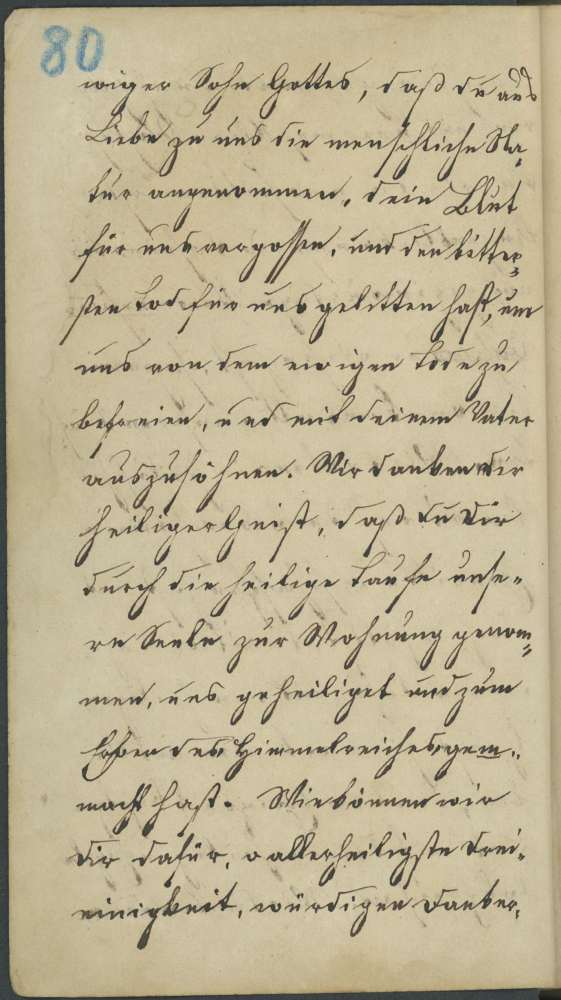 80
wiger Sohn Gottes, daß du aus
Liebe zu uns die menschliche Na-
tur angenommen, dein Blut
für uns vergossen, und den bitter-
sten Tod für uns gelitten hast, um
uns von dem ewigen Tode zu
befreien, und mit deinem Vater
auszusöhnen. Wir danken dir
heiliger Geist, daß du dir
durch die heilige Taufe unse-
re Seele zur Wohnung genom-
men, uns geheiliget und zum
Erben des Himmelreiches gem-
macht hast. Wie können wir
dir dafür, o allerheiligste Drei-
einigkeit, würdigen Danker-